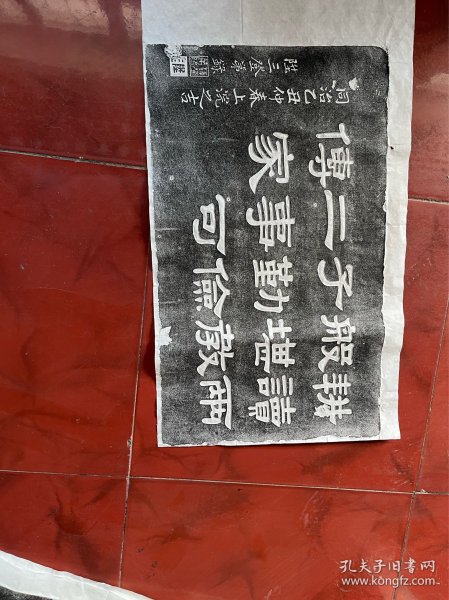 耕讀兩
般堪教
子勤儉
二事可
傳家
同治乙丑仲春上浣之吉
孔夫子旧书网
www.kongfz.com